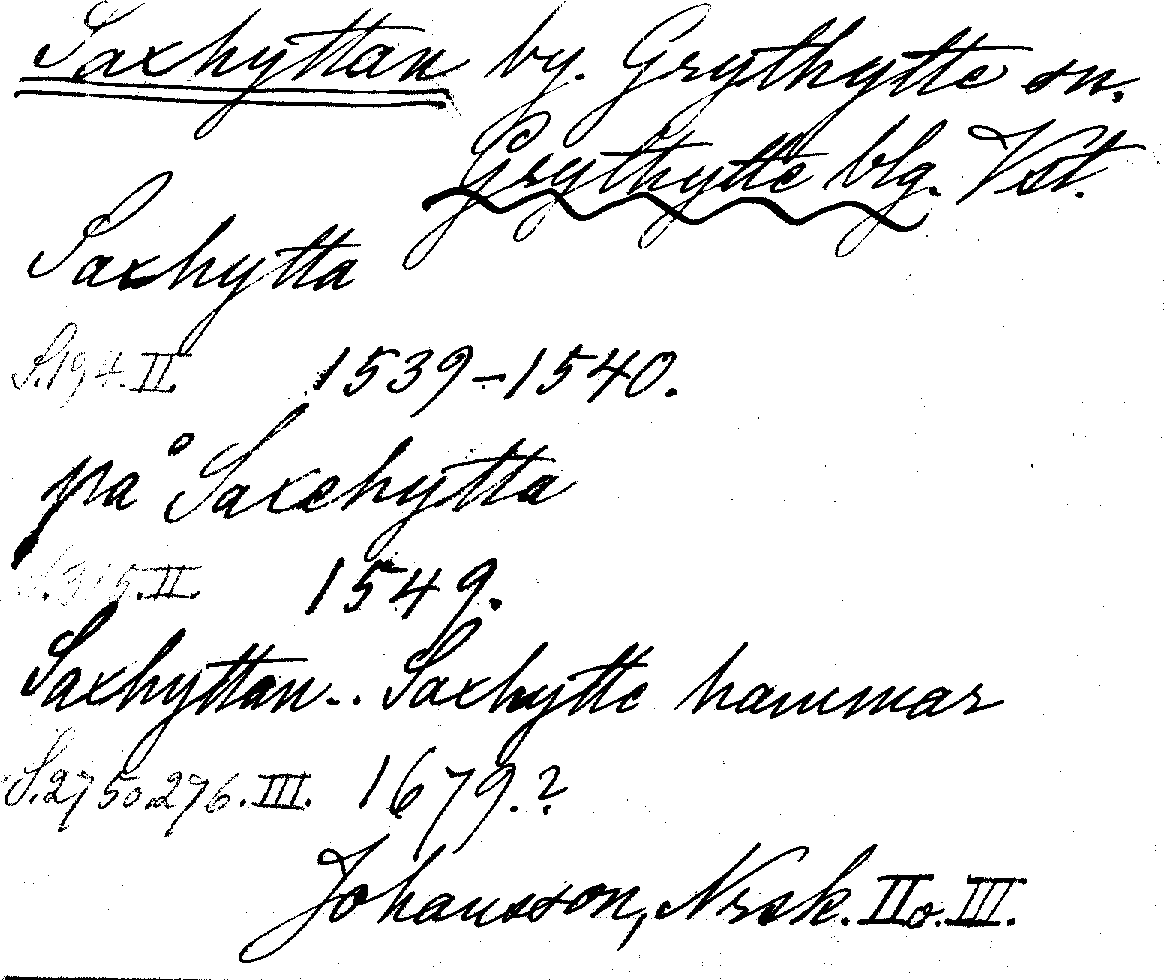 Saxhyttan by. Grythytte sn.
Grythytte blg. Vstl.
Saxhytta
S.194.II. 1539–1540.
på Saxehytta
S.315.II. 1549.
Saxhyttan.. Saxhytte hammar
S.275o.276.III. 1679.?
Johansson, Nrsk. II o. III.